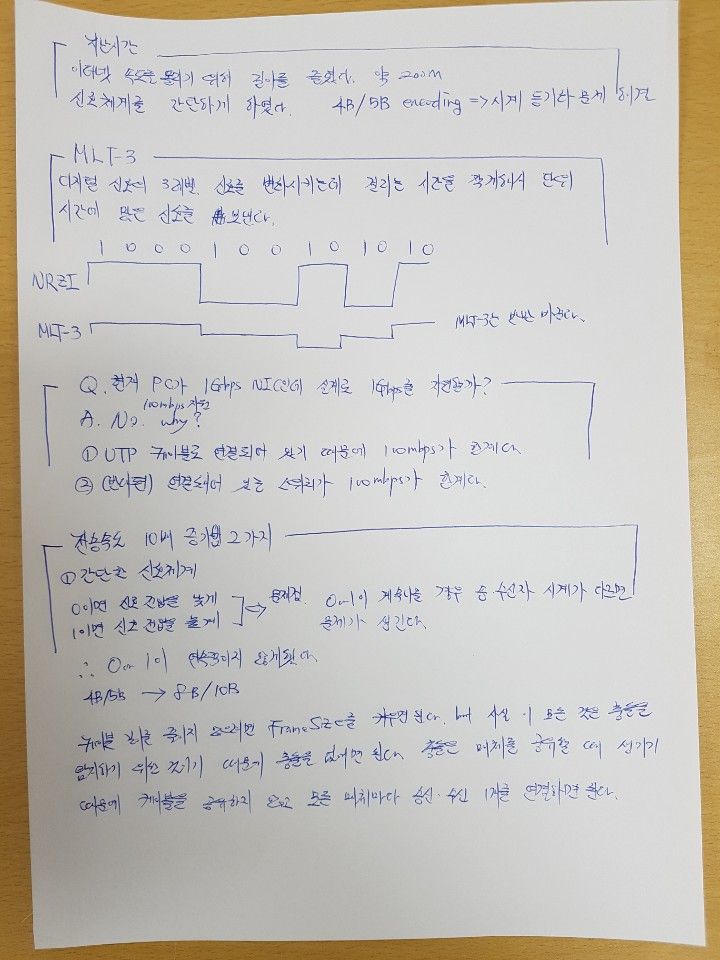 지난시간
이더넷 속도를 올리기 위해 길이를 줄였다. 약 200m
신호체계를 간단하게 하였다. 4B/5B encoding => 시계 동기화 문제 해결
MLT-3
디지털 신호의 3레벨. 신호를 변화시키는데 걸리는 시간을 짧게해서 단위
시간에 많은 신호를 보낸다.
1 0 0 0 1 0 0 1 0 1 0 1 0
NRZI
MLT-3
MLT-3는 반씩 바뀐다.
Q. 현재 PC가 1Gbps NIC인데 실제로 1Gbps를 지원할까?
100mbps 지원
A. No. why?
① UTP 케이블로 연결되어 있기 때문에 100mbps가 한계다
② 연결되어 있는 스위치가 100mbps가 한계다.
전송속도 10배 증가 2가지
① 간단한 신호체계
0이면 신호 전압을 낮게
1이면 신호 전압을 높게
=> 문제점. 0or1이 계속나올 경우 송 수신자 시계가 다르면
문제가 생긴다.
∴ 0or1이 연속되지 않게된다.
4B/5B → 8B/10B
케이블 길이를 줄이지 않으려면 FrameSize를 키우면 된다. but 사실 이 모든 것은 충돌을
탐지하기 위한 것이기 때문에 충돌을 없애면 된다. 충돌은 매체를 공유할 때 생기기
때문에 케이블을 공유하지 않고 모든 매체마다 송신·수신 1개를 연결하면 된다.